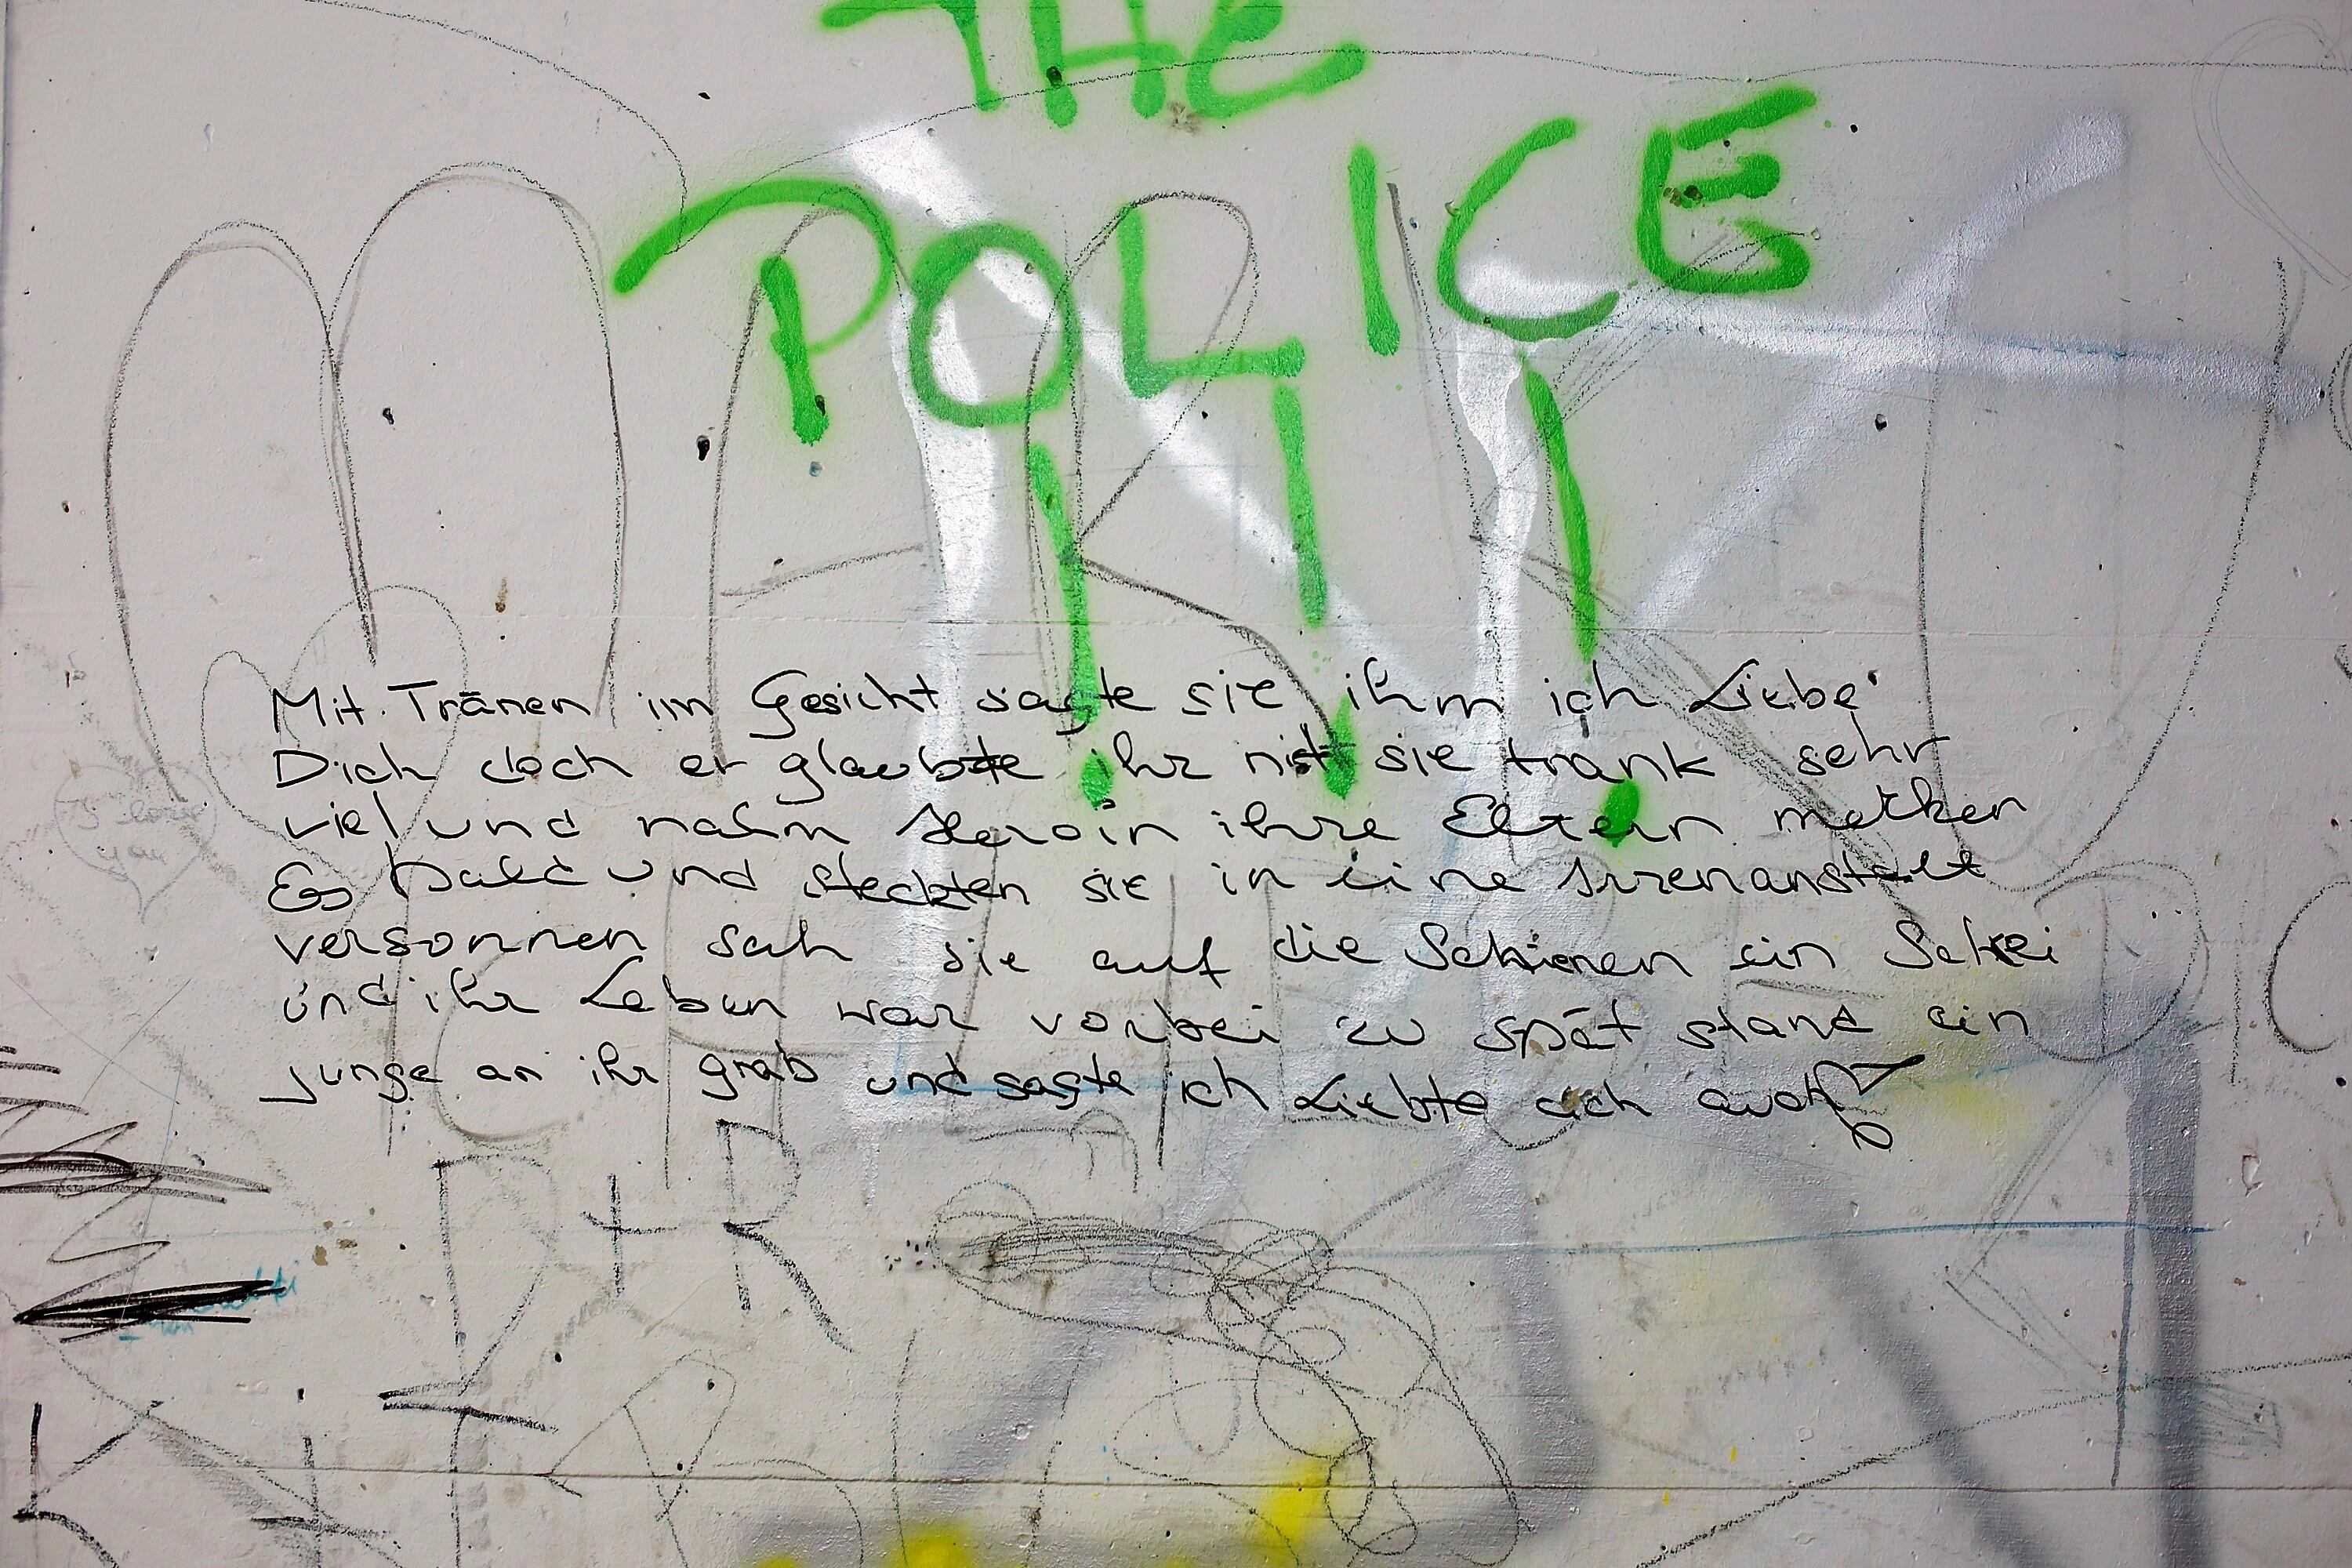 THE
POLICE
!!!
Mit Tränen im Gesicht sagte sie ihm ich Liebe
Dich doch er glaubte ihr nist sie trank sehr
viel und nahm Heroin ihre Eltern merken
Es bald und steckten sie in eine Irrenanstalt
versonnen sah sie auf die Schienen ein Schrei
und ihr Leben war vorbei zu spät stand ein
junge an ihr grab und sagte ich Liebte dich auch
I love
you
D+R